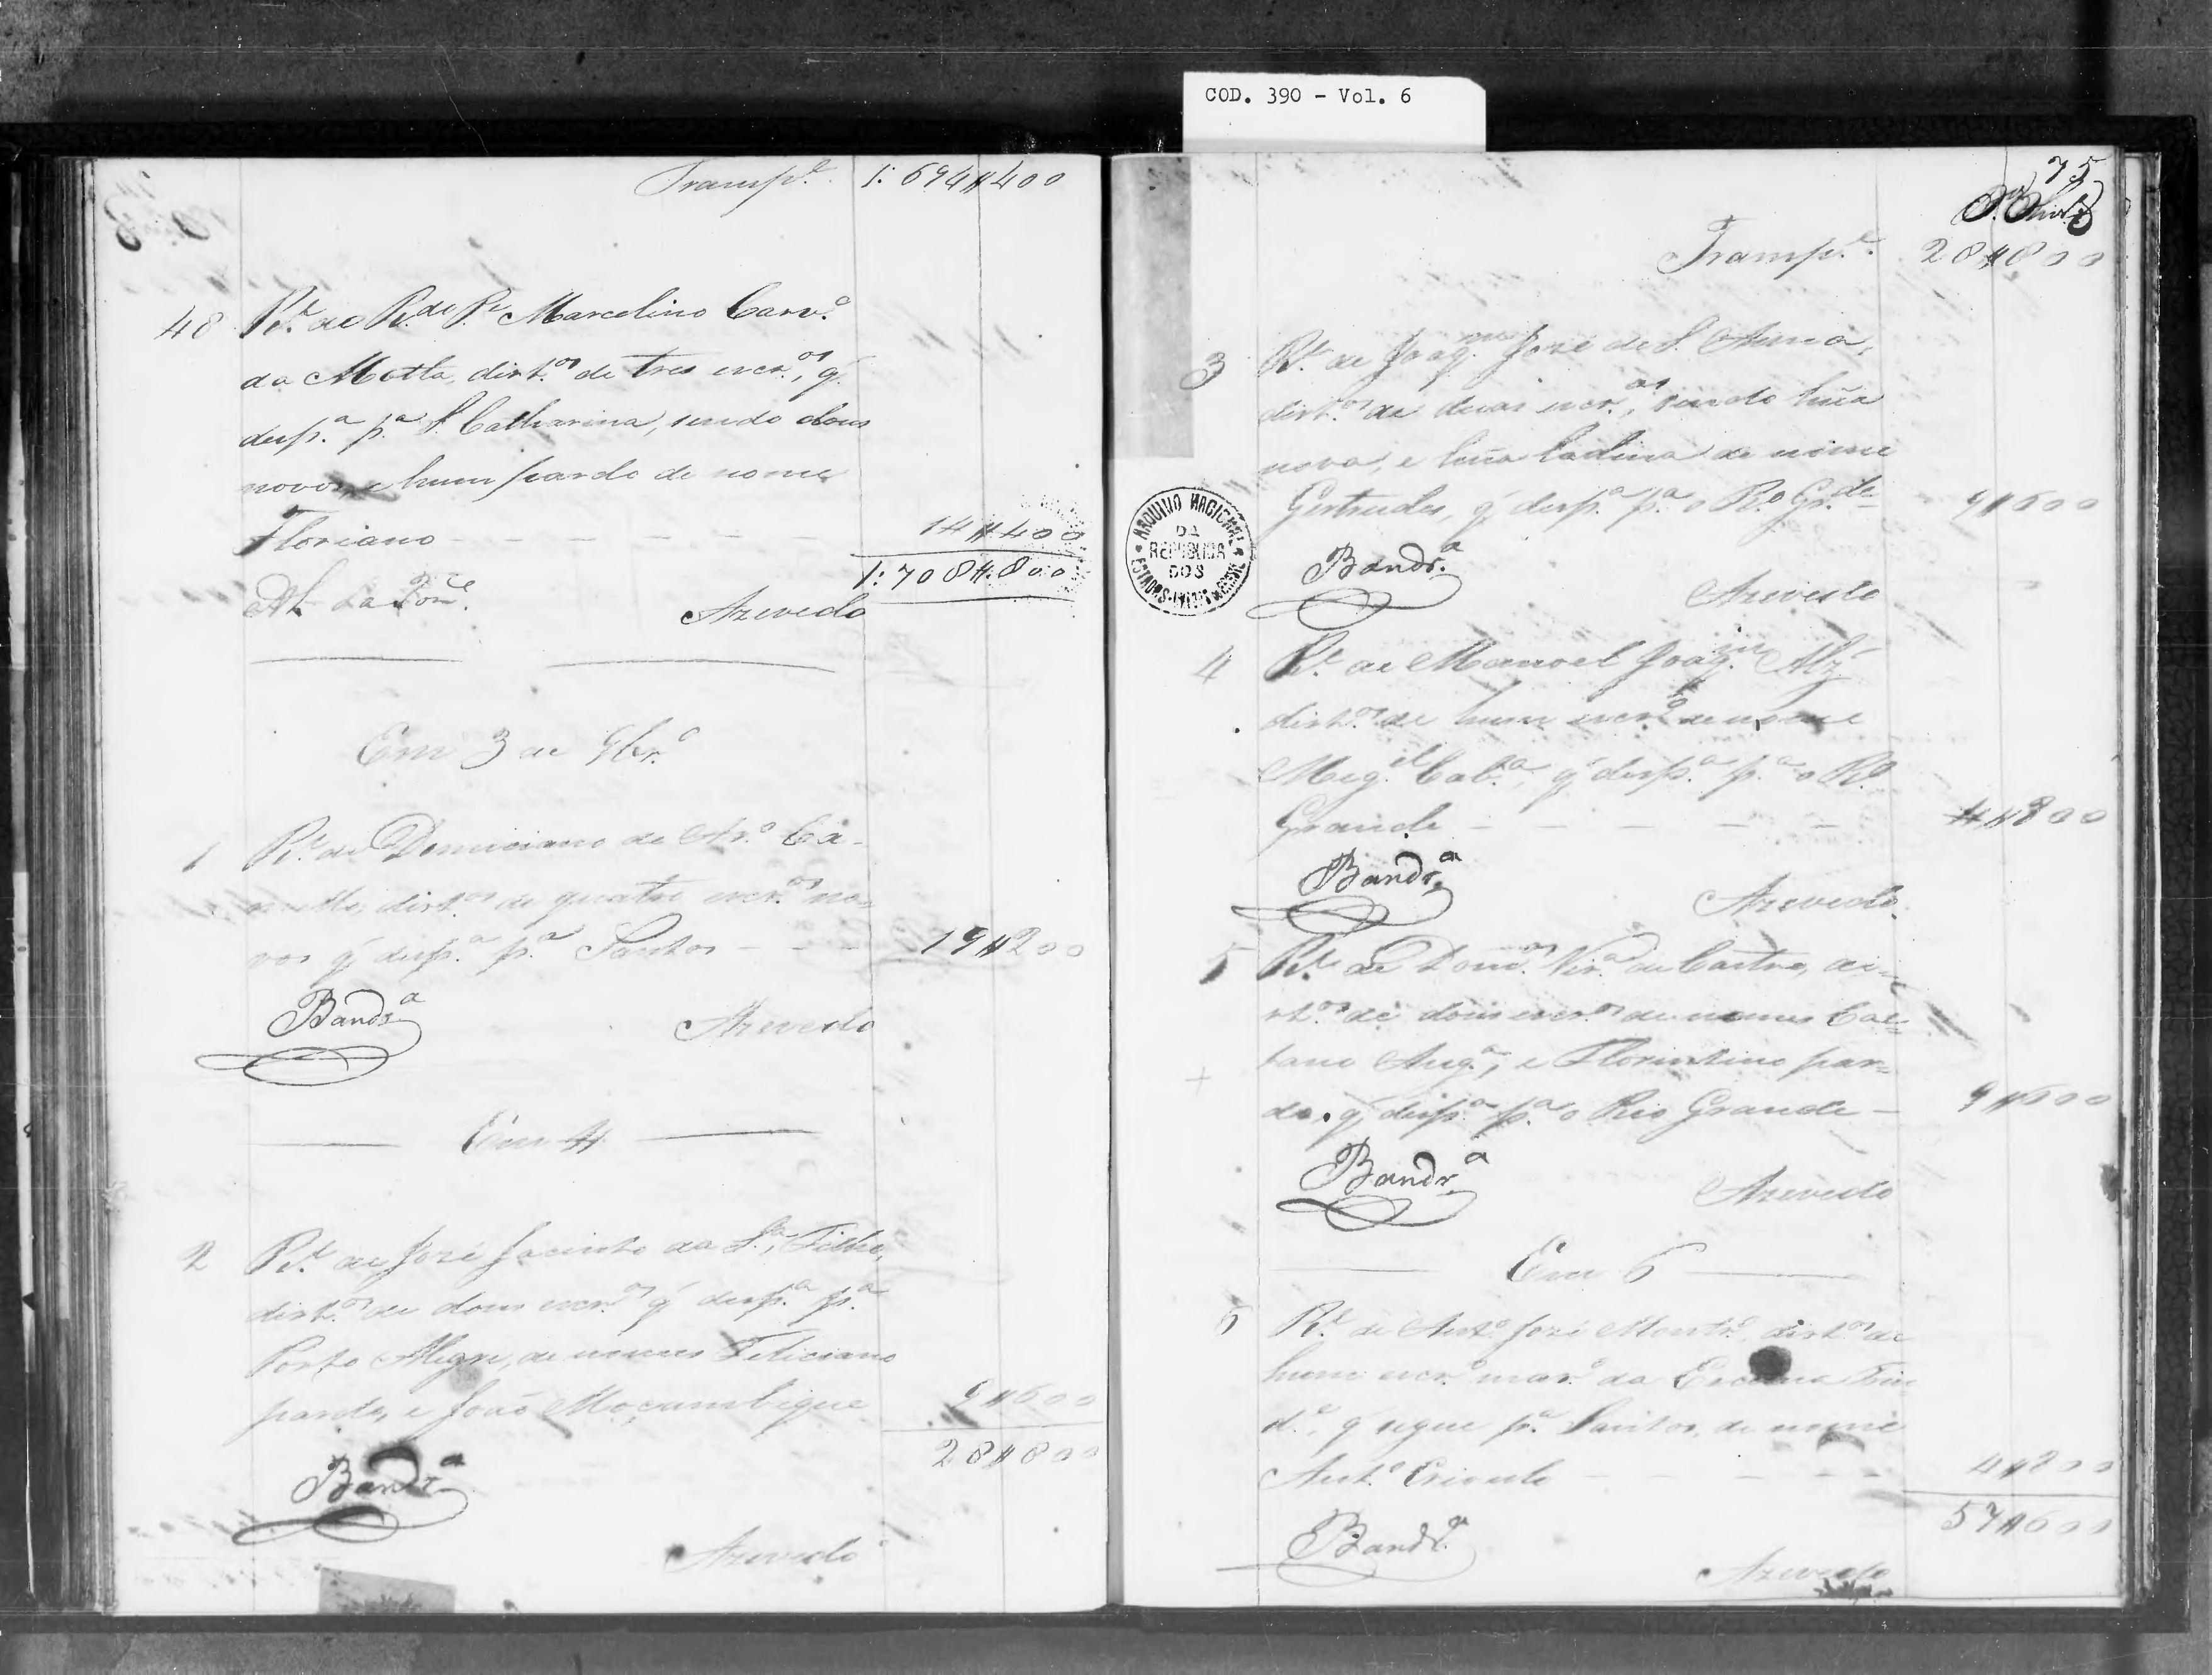 COD. 390 - Vol. 6
Transp.e 1:694#400
48 R.e do R.do P.e Marcelino Carv.o
da Motta, dirt.os de tres escr.os, q'
desp.a p.a S. Catharina, sendo dous
novos, e hum pardo de nome
Floriano - - - - - - 14#400
1:708#800
Azevedo
Em 3 de 9br.o
1 R.e de Domiciano de Ar.o Ca-
dirt.os de quatro escr.os no-
vos q' desp.a p.a Santos - - - 19#200
Bandr.a
Azevedo
Em 4
2 R.e de José Jacinto da S.a Filho,
dirt.os de dous escr.os q' desp.a p.a
Porto Alegre, de nomes Feliciano
pardo, e João Moçambique 9#600
28#800
Bandr.a
Azevedo
75
Transp.e 28#800
3 R.e de Joaq.m José de S. Anna,
dirt.os de duas escr.as, sendo hũa
nova, e hũa ladina de nome
Gertrudes, q' desp.a p.a o R.o Gr.de - 9#600
ARQUIVO NACIONAL
DA
REPUBLICA
DOS
ESTADOS UNIDOS DO BRASIL
Bandr.a
Azevedo
4 R.e de Manoel Joaq.m Alz'
dirt.os de hum escr.o de nome
Mig.el Cab.a, q' desp.a p.a o R.o
Grande - - - - - 4#800
Bandr.a
Azevedo
5 R.e de Dom.os Vir.a de Castro, di-
rt.os de dous escr.os de nomes Cae-
tano Ang.a, e Florintino par=
do, q' desp.a p.a o Rio Grande - 9#600
Bandr.a
Azevedo
Em 6
6 R.e de Ant.o José Montr.o dirt.os de
hum escr.o mar.o da Escuna Trin-
d.e, q' segue p.a Santos, de nome
Ant.o Crioulo - - - - - 4#800
57#600
Bandr.a
Azevedo